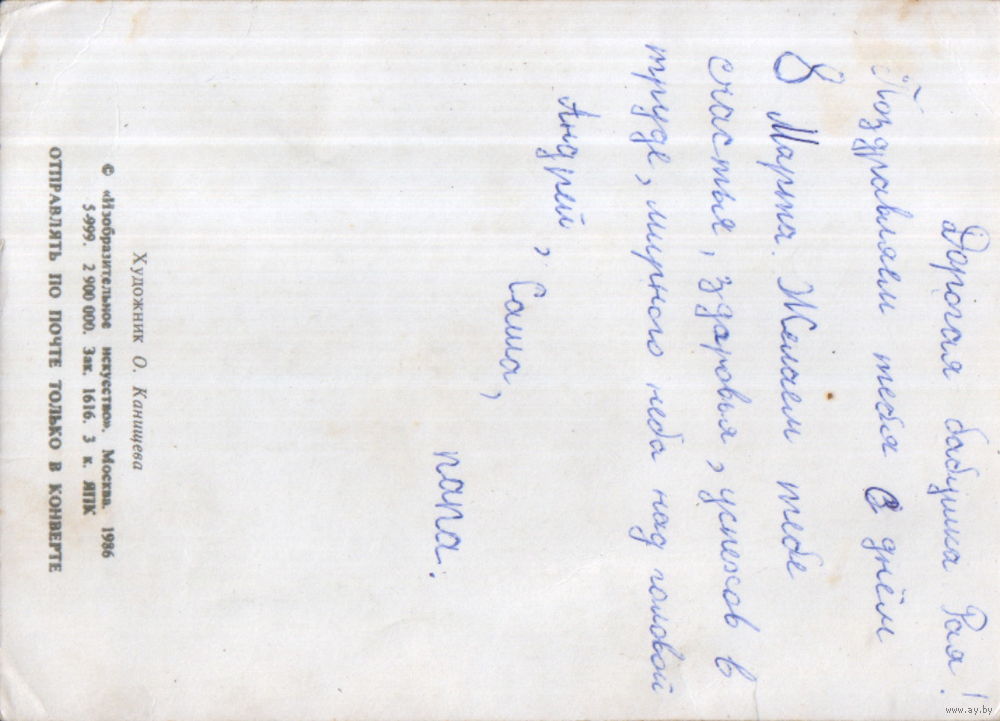 Дорогая бабушка Рая!
Поздравляем тебя с днём
8 Марта. Желаем тебе
счастья, здоровья, успехов в
труде, мирного неба над головой
Андрей, Саша,
папа.
Художник О. Канищева
© «Изобразительное искусство». Москва. 1986
5-999. 2 900 000. Зак. 1616. 3 к. ЯПК
ОТПРАВЛЯТЬ ПО ПОЧТЕ ТОЛЬКО В КОНВЕРТЕ
www.ay.by